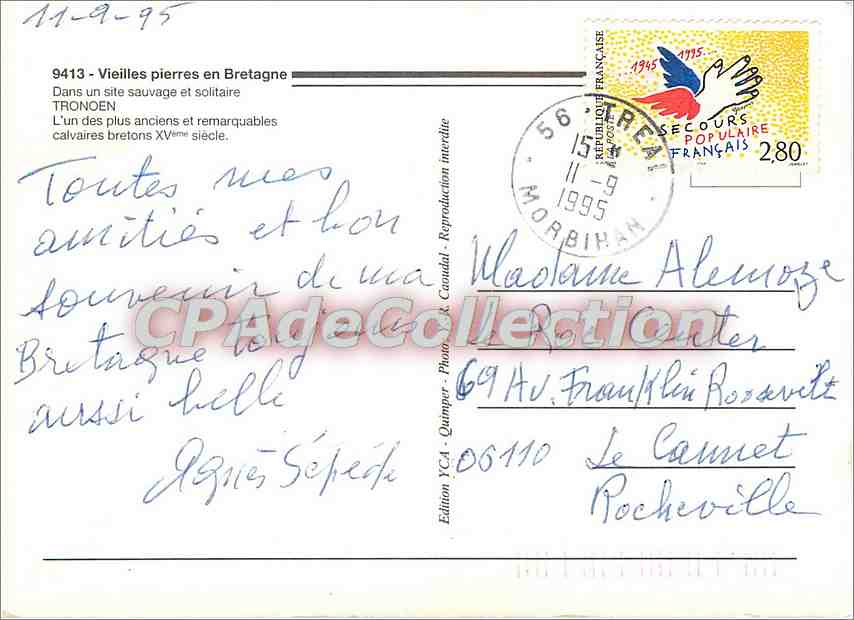 11-9-95
9413 - Vieilles pierres en Bretagne
Dans un site sauvage et solitaire
TRONOEN
L'un des plus anciens et remarquables
calvaires bretons XVème siècle.
Toutes mes
amitiés et bon
souvenir de ma
Bretagne toujours
aussi belle
Agnès Sépéde
Edition YCA - Quimper - Photo R. Caoudal - Reproduction interdite
RÉPUBLIQUE FRANÇAISE
LA POSTE
...1945 1995...
SECOURS
POPULAIRE
FRANÇAIS
2,80
56 - TREAL
15 H
11 -9
1995
MORBIHAN
Madame Alemoze
Le Roi Center
69 Av. Franklin Roosevelt
06110 Le Cannet
Rocheville
CPAdeCollection.com